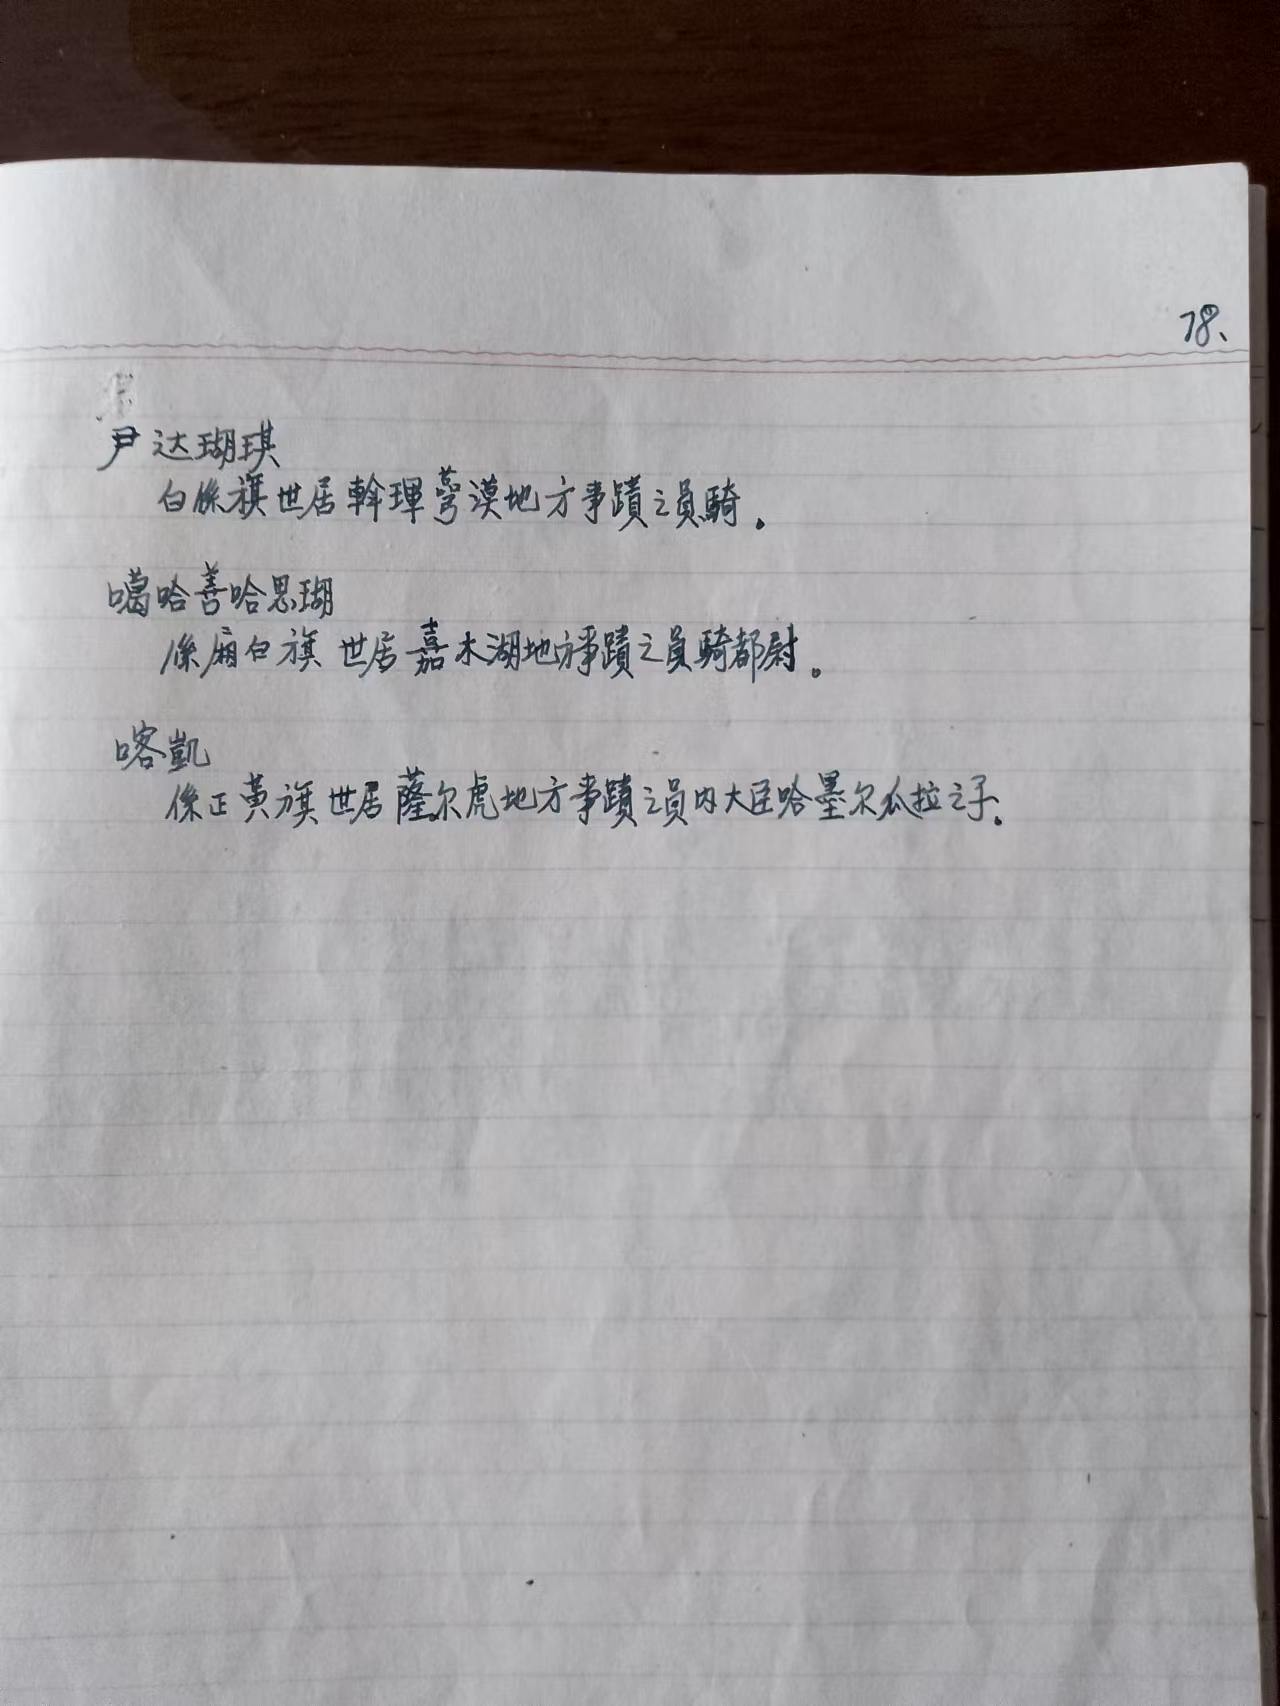 78、
尹达瑚琪
白係旗世居斡琿蕚漠地方事蹟之員騎。
噶哈善哈思瑚
係廂白旗世居嘉木湖地方事蹟之員騎都尉。
喀凱
係正黃旗世居薩尔虎地方事蹟之員内大臣哈墨尔瓜拉之子。